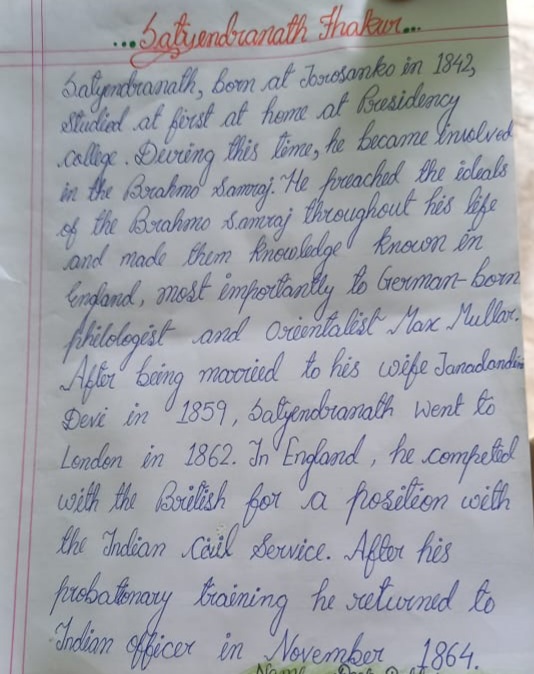 ...Satyendranath Thakur...
Satyendranath, born at Jorosanko in 1842,
studied at first at home at Presidency
college. During this time, he became involved
in the Brahmo Samraj. He preached the ideals
of the Brahmo Samraj throughout his life
and made them knowledge known in
England, most importantly to German-born
philologist and Orientalist Max Mullar.
After being married to his wife Janadandin
Devi in 1859, Satyendranath went to
London in 1862. In England, he competed
with the British for a position with
the Indian Civil Service. After his
probationary training he returned to
Indian officer in November 1864.
Name